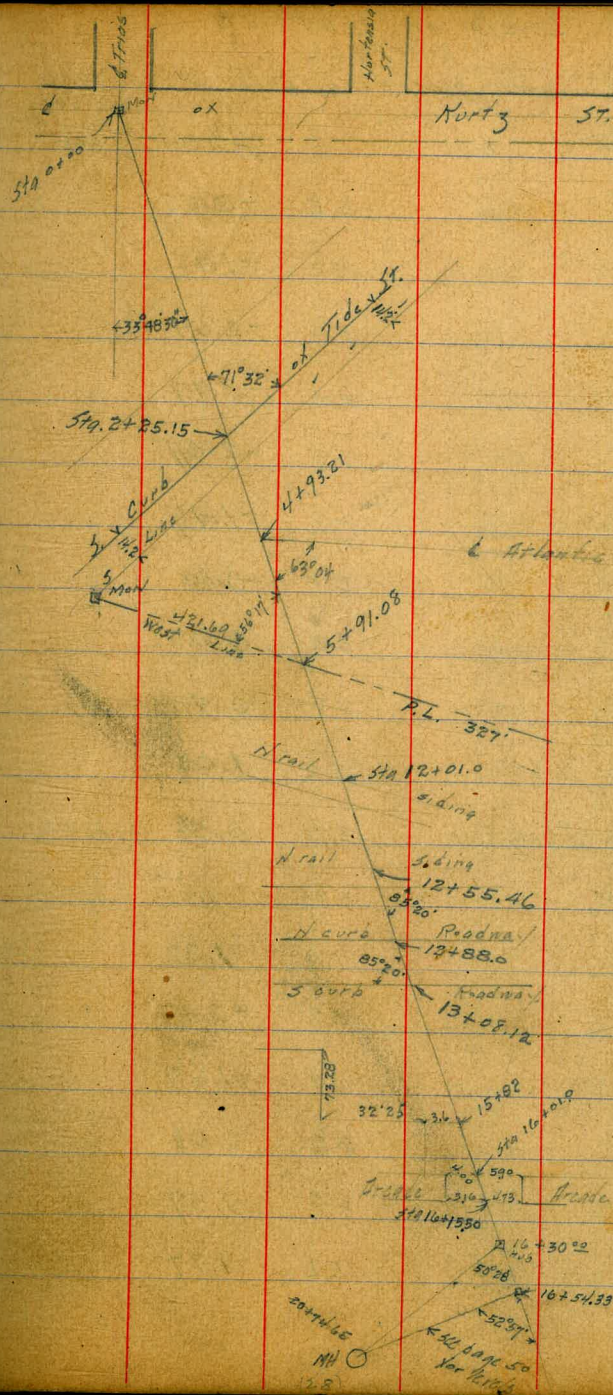 ℄ Trias
Hortensia
ST.
Mon
ox
Kurtz ST.
Sta 0+00
33°48'30"
71°32'
ox Tide St.
14.2
Sta. 2+25.15
Curb
Line
14.2
4+93.21
℄ Atlantic
63°04
Mon
West 421.69
Line
56°17'
5+91.08
P.L. 327'
N rail
Sta 12+01.0
siding
N rail
Siding
12+55.46
85°20'
N curb Roadway
12+88.0
85°20'
S curb Roadway
13+08.12
73.28
32°25
3.6
15+82
Sta 16+01.9
4.00
590
Arcade
516
473
Arcade
Sta 16+15.50
16+30.00
Hub
50°28
16+54.33
20+74.65
52°57'
See page 50
MH
(28)